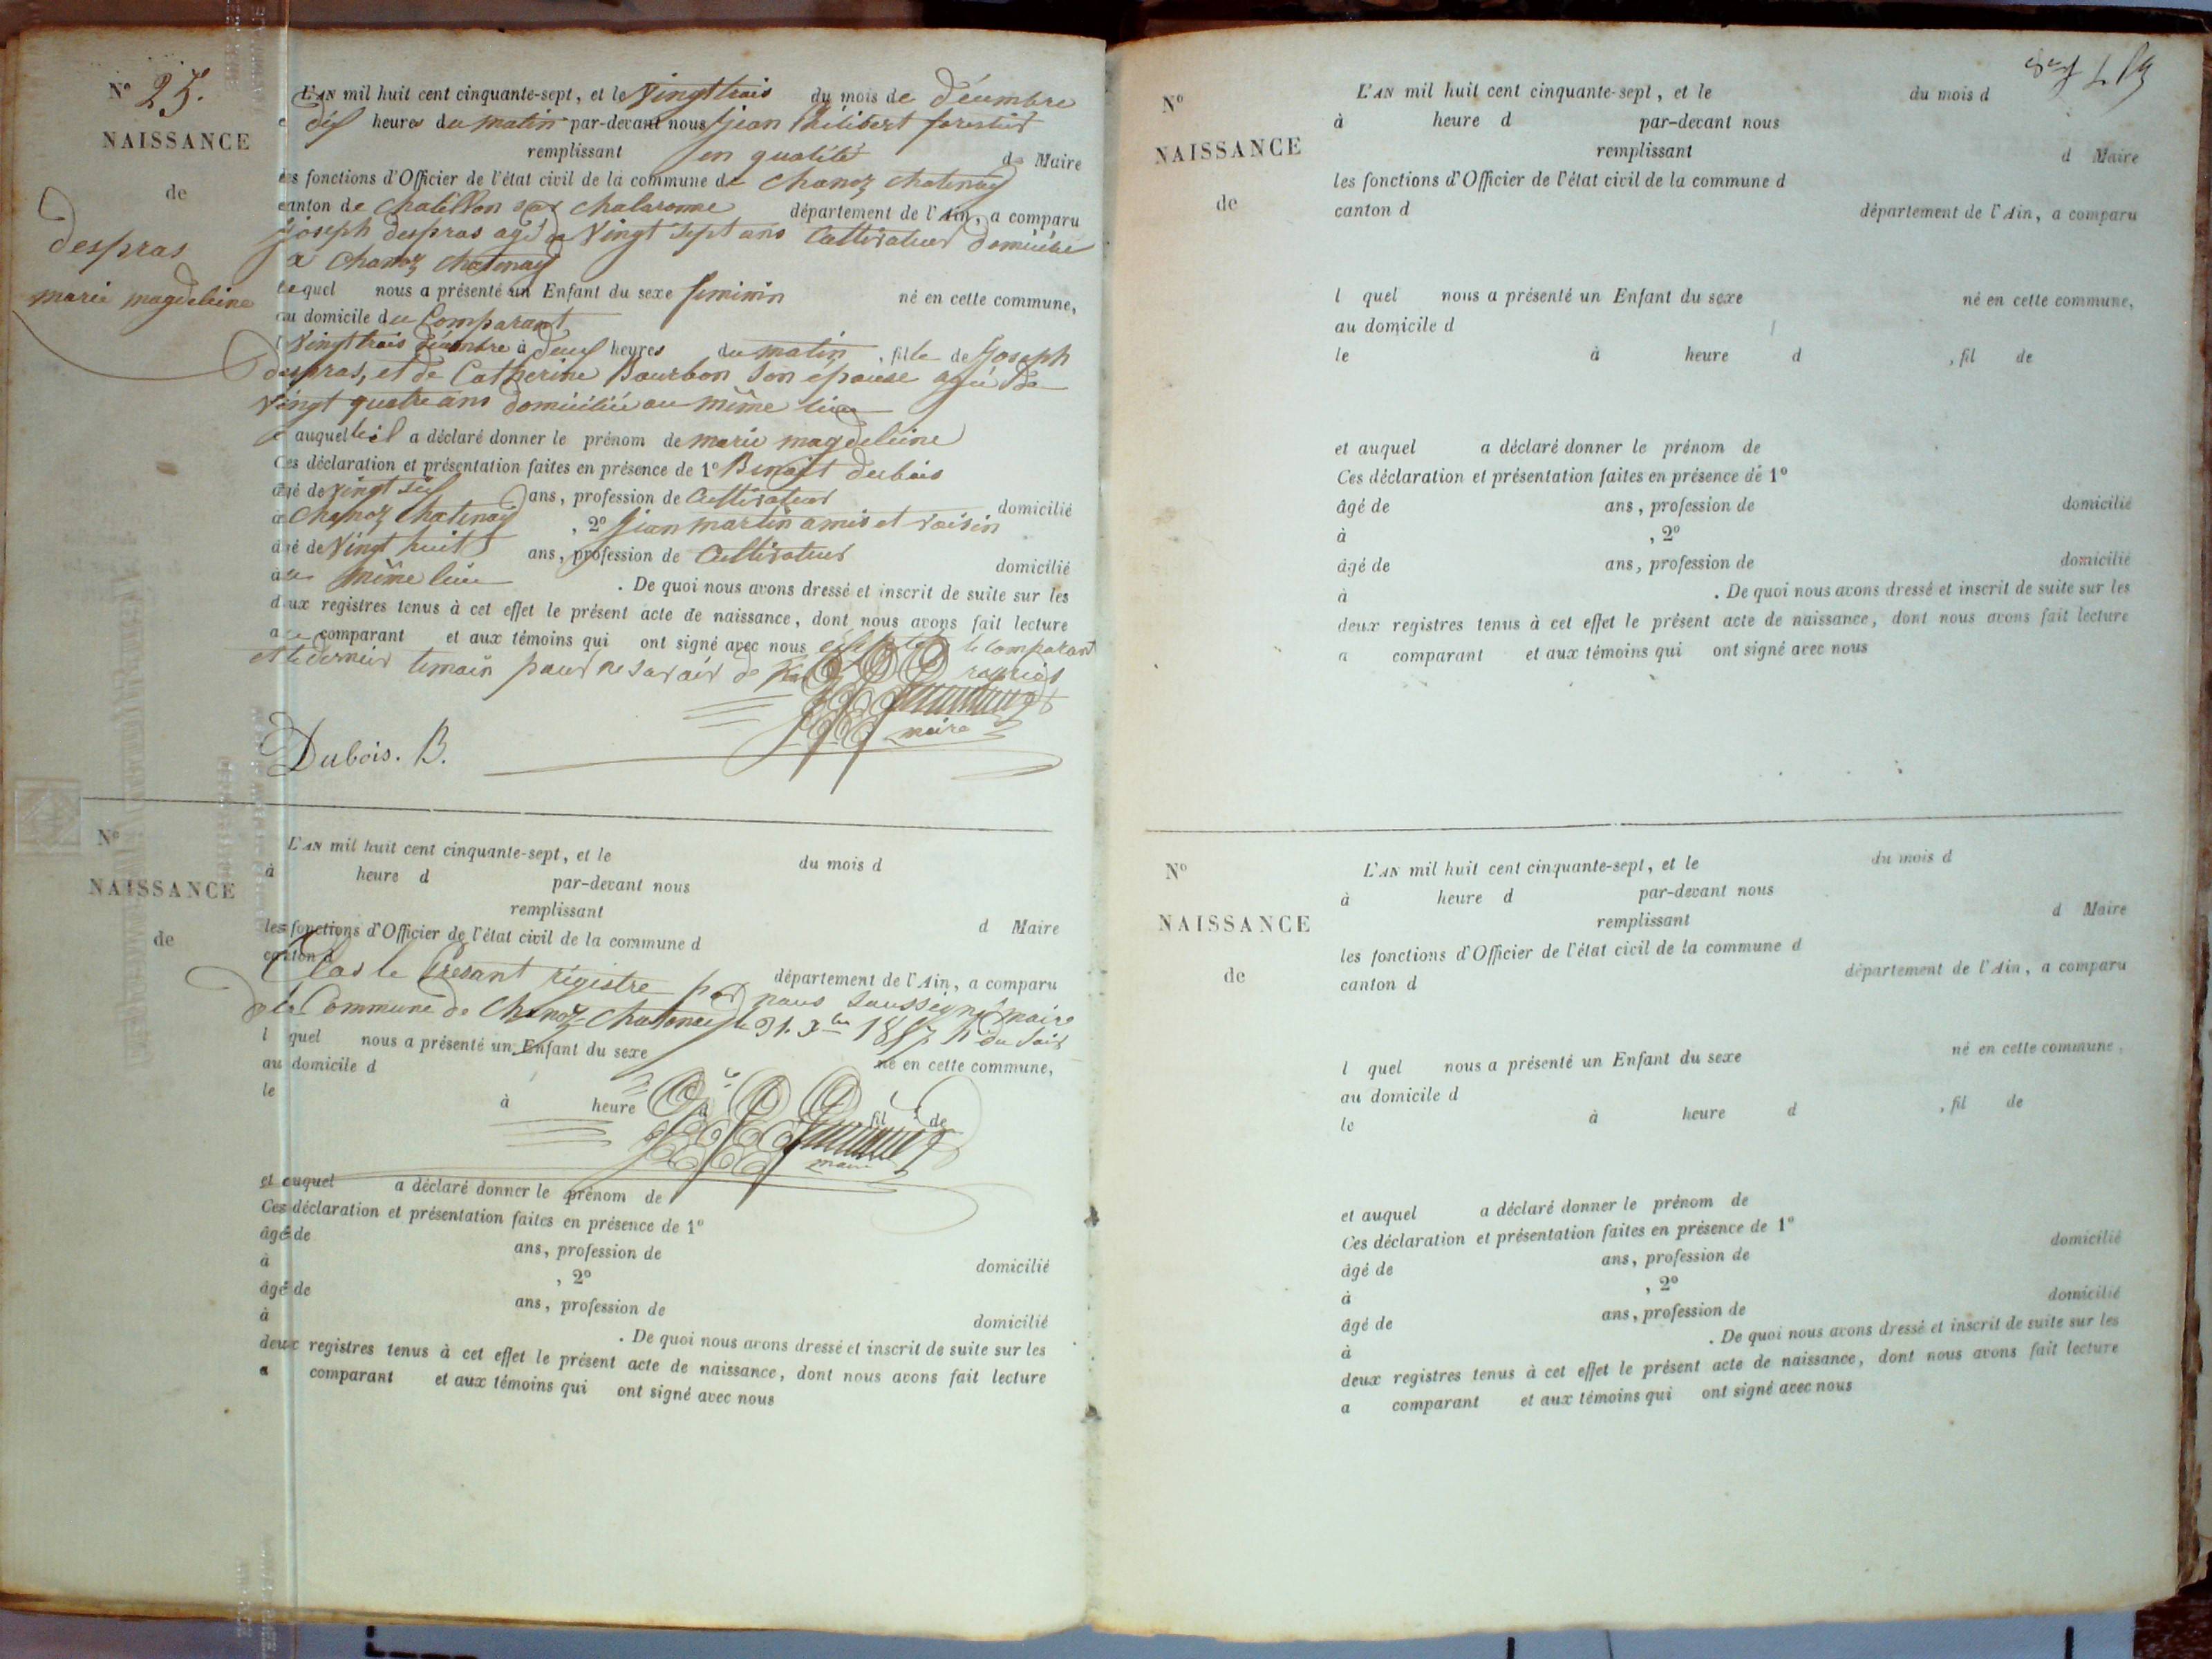 N° 25.
NAISSANCE
de
despras
marie magdeleine
L'AN mil huit cent cinquante-sept, et le Vingt trois du mois de décembre
à dix heures du matin par-devant nous jean Philibert forestier
remplissant en qualité de Maire
les fonctions d'Officier de l'état civil de la commune de Chanoz Chatenay
canton de Chatillon sur Chalaronne département de l'Ain, a comparu
joseph despras agé de Vingt Sept ans Cultivateur domicilié
a Chanoz Chatenay
lequel nous a présenté un Enfant du sexe feminin né en cette commune,
au domicile du Comparant
Vingt trois décembre à deux heures du matin, fille de joseph
despras, et de Catherine Bourbon Son épouse agée de
Vingt quatre ans domiciliée au même lieu
auquel il a déclaré donner le prénom de marie magdeleine
Ces déclaration et présentation faites en présence de 1° Benoit dubois
âgé de Vingt six ans, profession de Cultivateur domicilié
à Chanoz Chatenay, 2° jean martin amis et voisin
âgé de Vingt huit ans, profession de Cultivateur domicilié
au même lieu. De quoi nous avons dressé et inscrit de suite sur les
deux registres tenus à cet effet le présent acte de naissance, dont nous avons fait lecture
au comparant et aux témoins qui ont signé avec nous le comparant
et le dernier temoin pour ne savoir de requis
maire
Dubois. B.
N°
NAISSANCE
de
L'AN mil huit cent cinquante-sept, et le du mois d
à heure d par-devant nous
remplissant d Maire
les fonctions d'Officier de l'état civil de la commune d
canton d département de l'Ain, a comparu
Clos le Présant régistre par nous Soussigné maire
de la Commune de Chanoz-Chatenay le 31. Xbre 1857 du Soir
l quel nous a présenté un Enfant du sexe né en cette commune,
au domicile d
le à heure d fil de
maire
et auquel a déclaré donner le prénom de
Ces déclaration et présentation faites en présence de 1°
âgé de ans, profession de domicilié
à , 2°
âgé de ans, profession de domicilié
à . De quoi nous avons dressé et inscrit de suite sur les
deux registres tenus à cet effet le présent acte de naissance, dont nous avons fait lecture
a comparant et aux témoins qui ont signé avec nous
N°
NAISSANCE
de
L'AN mil huit cent cinquante-sept, et le du mois d
à heure d par-devant nous
remplissant d Maire
les fonctions d'Officier de l'état civil de la commune d
canton d département de l'Ain, a comparu
l quel nous a présenté un Enfant du sexe né en cette commune,
au domicile d
le à heure d , fil de
et auquel a déclaré donner le prénom de
Ces déclaration et présentation faites en présence de 1°
âgé de ans, profession de domicilié
à , 2°
âgé de ans, profession de domicilié
à . De quoi nous avons dressé et inscrit de suite sur les
deux registres tenus à cet effet le présent acte de naissance, dont nous avons fait lecture
a comparant et aux témoins qui ont signé avec nous
N°
NAISSANCE
de
L'AN mil huit cent cinquante-sept, et le du mois d
à heure d par-devant nous
remplissant d Maire
les fonctions d'Officier de l'état civil de la commune d
canton d département de l'Ain, a comparu
l quel nous a présenté un Enfant du sexe né en cette commune,
au domicile d
le à heure d , fil de
et auquel a déclaré donner le prénom de
Ces déclaration et présentation faites en présence de 1°
âgé de ans, profession de domicilié
à , 2°
âgé de ans, profession de domicilié
à . De quoi nous avons dressé et inscrit de suite sur les
deux registres tenus à cet effet le présent acte de naissance, dont nous avons fait lecture
a comparant et aux témoins qui ont signé avec nous